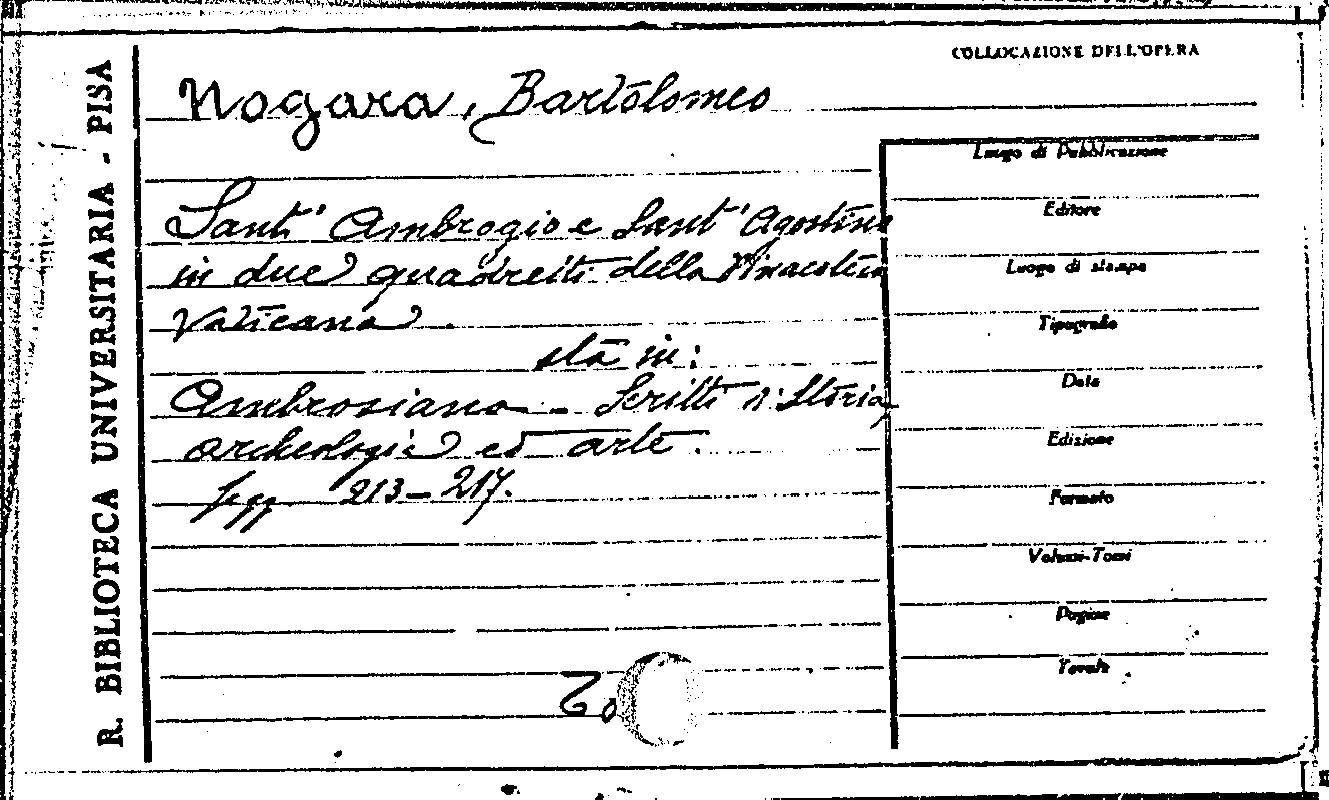 COLLOCAZIONE DELL'OPERA
R. BIBLIOTECA UNIVERSITARIA - PISA
Nogara, Bartolomeo
Sant' Ambrogio e Sant' Agostino
in due quadretti della Pinacoteca
Vaticana.
sta in:
Ambrosiana - Scritti di Storia,
archeologia ed arte.
pgg. 213-217.
Luogo di Pubblicazione
Editore
Luogo di stampa
Tipografo
Data
Edizione
Formato
Volumi-Tomi
Pagine
Tavole